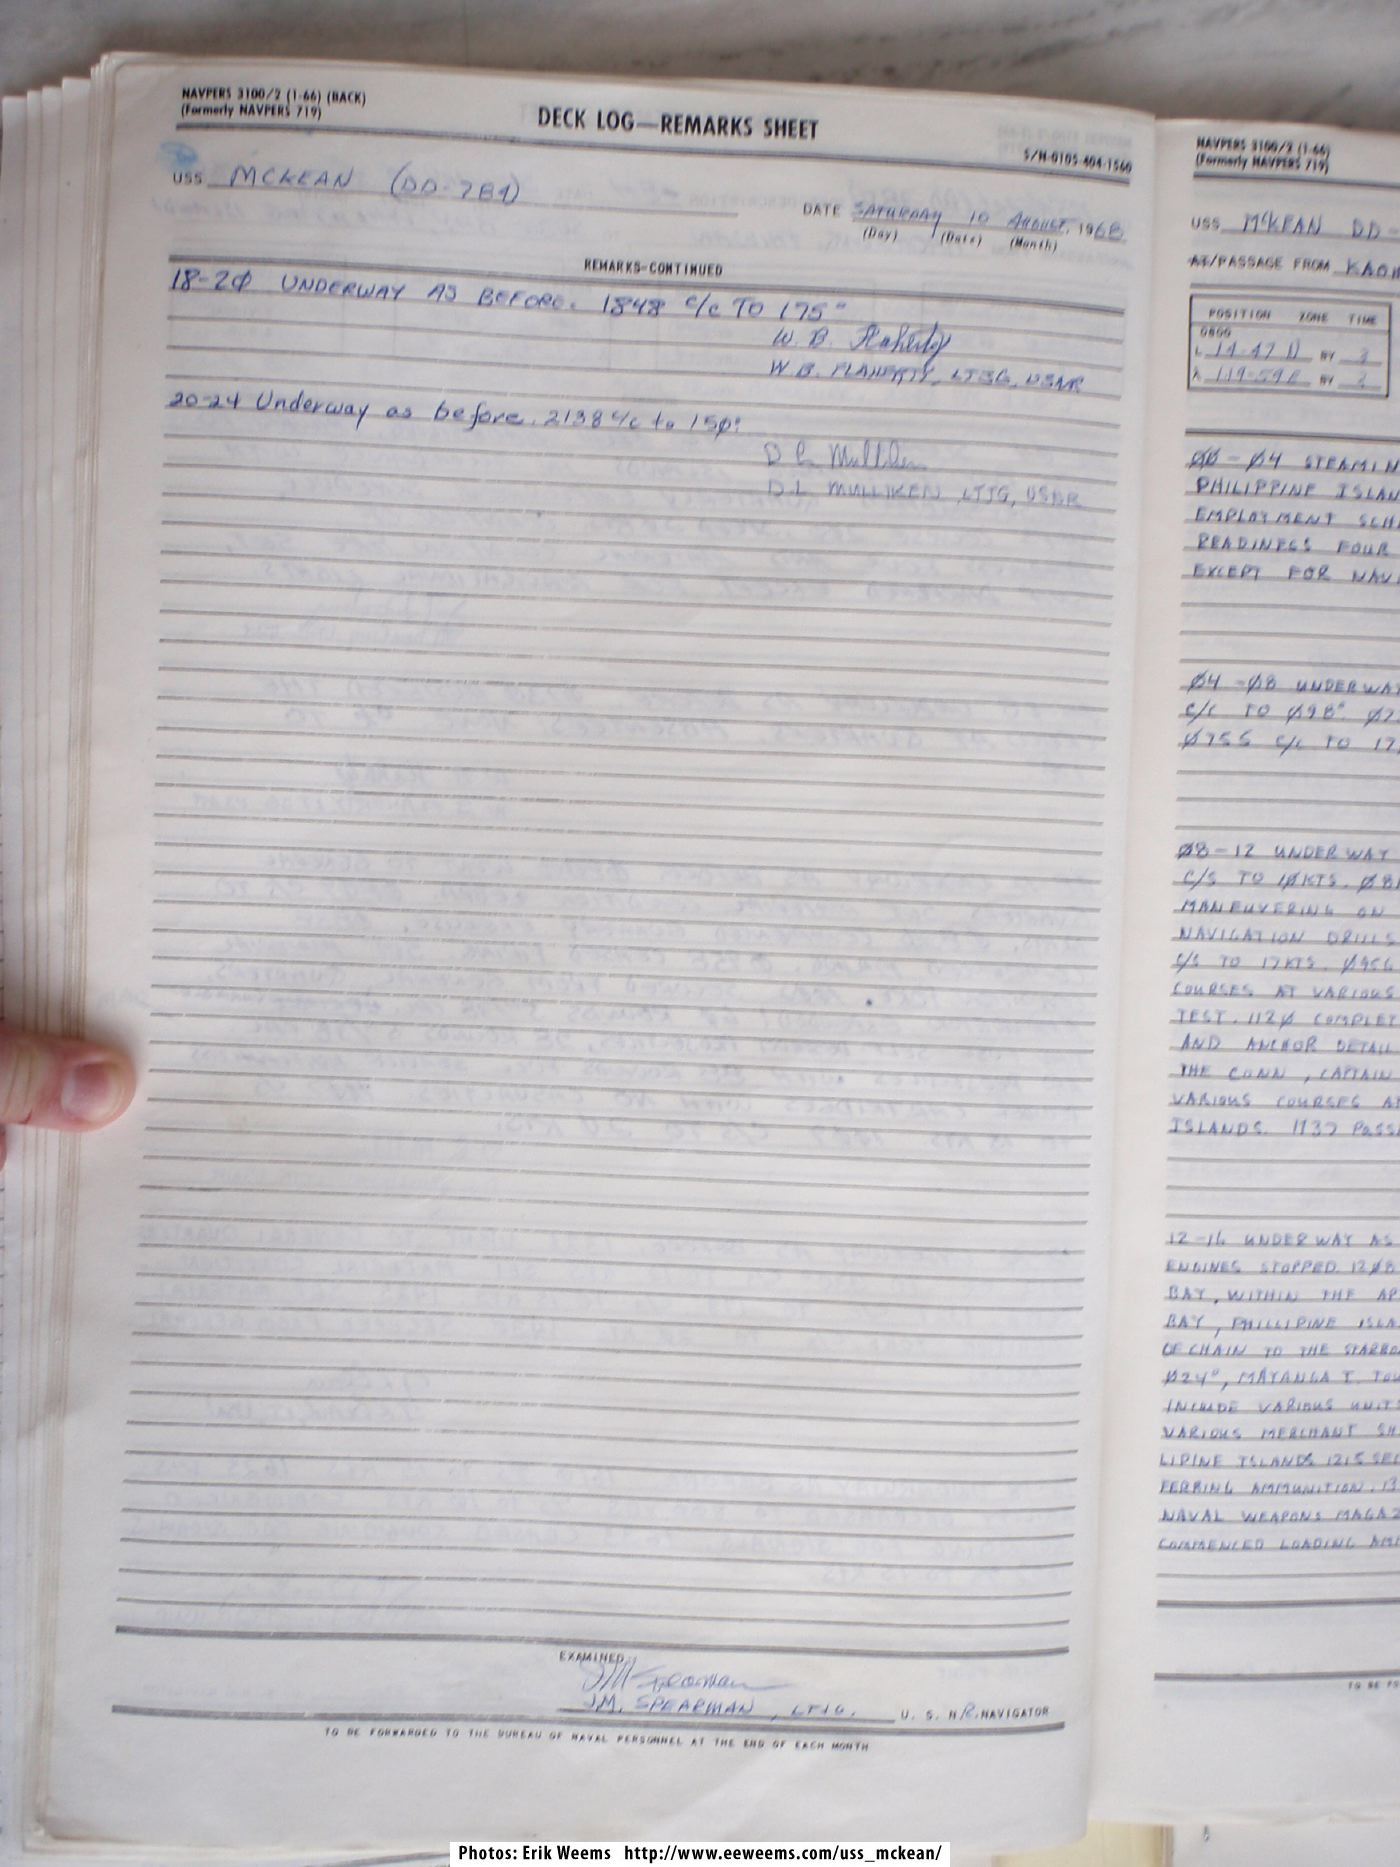 NAVPERS 3100/2 (1-66) (BACK)
(Formerly NAVPERS 719)
DECK LOG—REMARKS SHEET
S/N-0105-404-1560
USS MCKEAN (DD-784)
DATE SATURDAY 10 AUGUST, 1968
(Day) (Date) (Month)
REMARKS-CONTINUED
18-2Ø UNDERWAY AS BEFORE. 1848 c/c TO 175°
W. B. Flaherty
W.B. FLAHERTY, LTJG, USNR
20-24 Underway as before. 2138 c/c to 15Ø°
D L Mulliken
D.L MULLIKEN, LTJG, USNR
EXAMINED
JM Spearman
J.M. SPEARMAN, LTJG. U. S. N R. NAVIGATOR
TO BE FORWARDED TO THE BUREAU OF NAVAL PERSONNEL AT THE END OF EACH MONTH
NAVPERS 3100/2 (1-66)
(Formerly NAVPERS 719)
USS MCKEAN DD-
AT/PASSAGE FROM KAOH
POSITION ZONE TIME
0800
L 14-47 N BY 3
λ 119-59E BY 2
ØØ-Ø4 STEAMIN
PHILIPPINE ISLAN
EMPLOYMENT SCH
READINESS FOUR
EXCEPT FOR NAVI
Ø4-Ø8 UNDERWAY
C/C TO Ø98° Ø7
Ø755 C/C TO 17
Ø8-12 UNDERWAY
C/S TO 1ØKTS. Ø81
MANEUVERING ON
NAVIGATION DRILLS
C/S TO 17KTS. Ø956
COURSES AT VARIOUS
TEST. 112Ø COMPLET
AND ANCHOR DETAIL
THE CONN, CAPTAIN
VARIOUS COURSES AT
ISLANDS. 1137 PASS
12-16 UNDERWAY AS
ENGINES STOPPED. 12Ø8
BAY, WITHIN THE AR
BAY, PHILLIPINE ISLA
OF CHAIN TO THE STARBO
Ø24°, MAYANGA I. TOW
INCLUDE VARIOUS UNITS
VARIOUS MERCHANT SH
LIPINE ISLANDS 1215 SEC
FERRING AMMUNITION. 13
NAVAL WEAPONS MAGAZ
COMMENCED LOADING AMM
TO BE FO
Photos: Erik Weems http://www.eeweems.com/uss_mckean/